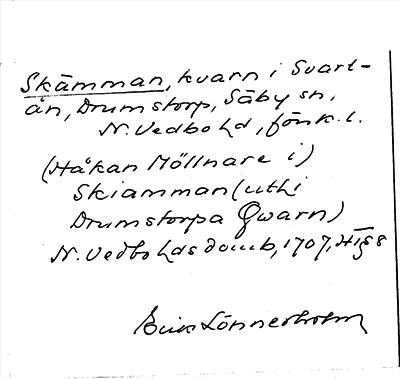 Skämman, kvarn i Svart-
ån, Drumstorp, Säby sn,
N. Vedbo hd, Jönk. l.
(Håkan Möllnare i)
Skiamman (uthi
Drumstorpa Qwarn)
N. Vedbo hds domb, 1707, 4/
Erik Lönnerholm